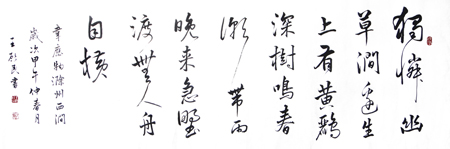 獨憐幽
草澗邊生
上有黄鸝
深樹鳴春
潮帶雨
晚来急野
渡無人舟
自横
韋應物滁州西澗
歲次甲午仲春月